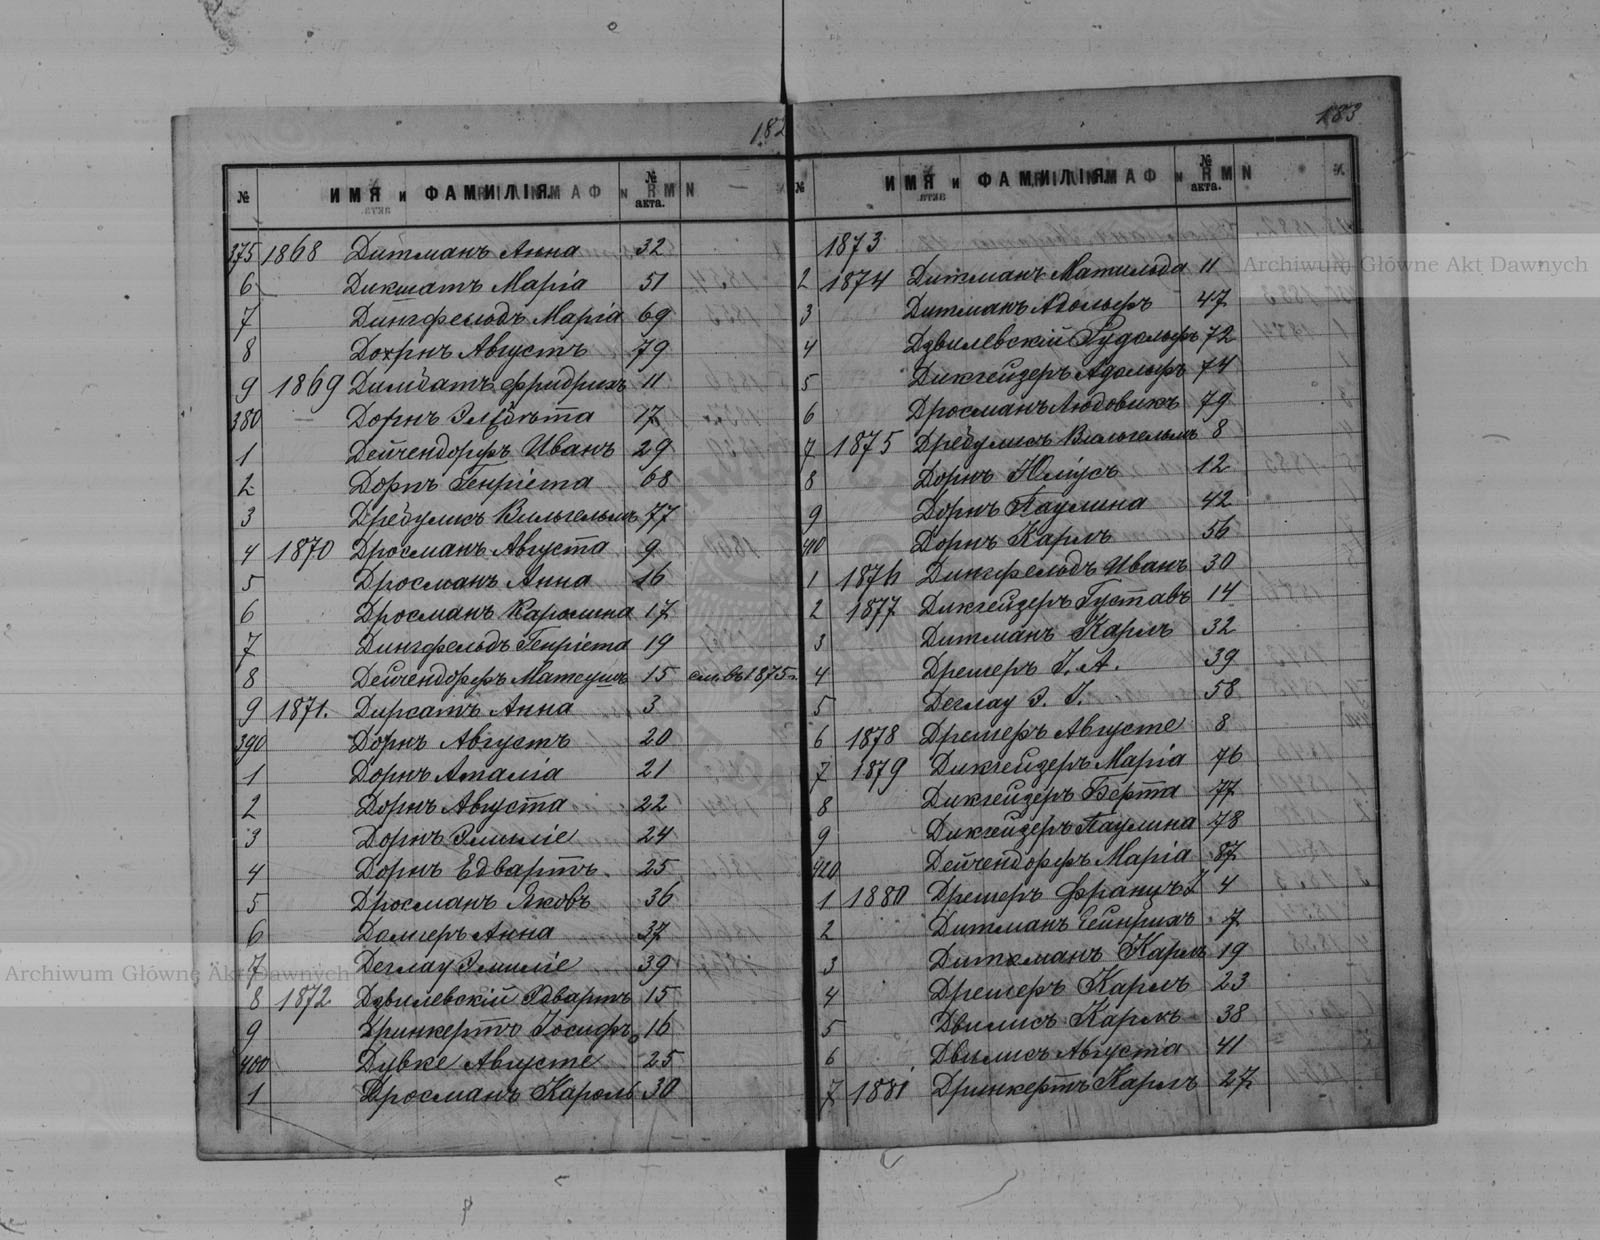 182
№ ИМЯ и ФАМИЛІЯ № акта.
375 1868 Дитманъ Анна 32
6 Дикшатъ Марія 51
7 Дингфельдъ Марія 69
8 Дорнъ Августъ 79
9 1869 Димбатъ Фридрихъ 11
380 Дорнъ Элзбѣта 17
1 Дейчендорфъ Иванъ 29
2 Дорнъ Генріета 68
3 Дребулисъ Вильгельмъ 77
4 1870 Дросманъ Августа 9
5 Дросманъ Анна 16
6 Дросманъ Каролина 17
7 Дингфельдъ Генріета 19
8 Дейчендорфъ Матеушъ 15 см. въ 1875 г.
9 1871. Дирсатъ Анна 3
390 Дорнъ Августъ 20
1 Дорнъ Амалія 21
2 Дорнъ Августа 22
3 Дорнъ Эмиліе 24
4 Дорнъ Едвартъ 25
5 Дросманъ Яковъ 36
6 Далгеръ Анна 37
7 Деглау Эмиліе 39
8 1872 Двилевскій Эдвартъ 15
9 Дринкертъ Іосифъ 16
400 Дувке Августе 25
1 Дросманъ Кароль 30
183
№ ИМЯ и ФАМИЛІЯ № акта.
1873
2 1874 Дитманъ Матильда 11
3 Дитманъ Адольфъ 47
4 Двилевскій Рудольфъ 72
5 Дикгейзеръ Адольфъ 74
6 Дросманъ Людовикъ 79
7 1875 Дребулисъ Вильгельмъ 8
8 Дорнъ Юліусъ 12
9 Дорнъ Паулина 42
410 Дорнъ Карлъ 56
1 1876 Дингфельдъ Иванъ 30
2 1877 Дикгейзеръ Густавъ 14
3 Дитманъ Карлъ 32
4 Дремеръ І. А. 39
5 Деглау Э. І. 58
6 1878 Дремеръ Августе 8
7 1879 Дикгейзеръ Марія 76
8 Дикгейзеръ Берта 77
9 Дикгейзеръ Паулина 78
420 Дейчендорфъ Марія 87
1 1880 Дремеръ Францъ І 4
2 Дитманъ Гейнрихъ 7
3 Дитманъ Карлъ 19
4 Дремеръ Карлъ 23
5 Двилисъ Карлъ 38
6 Двилисъ Августа 41
7 1881 Дринкертъ Карлъ 27
Archiwum Główne Akt Dawnych
Archiwum Główne Akt Dawnych